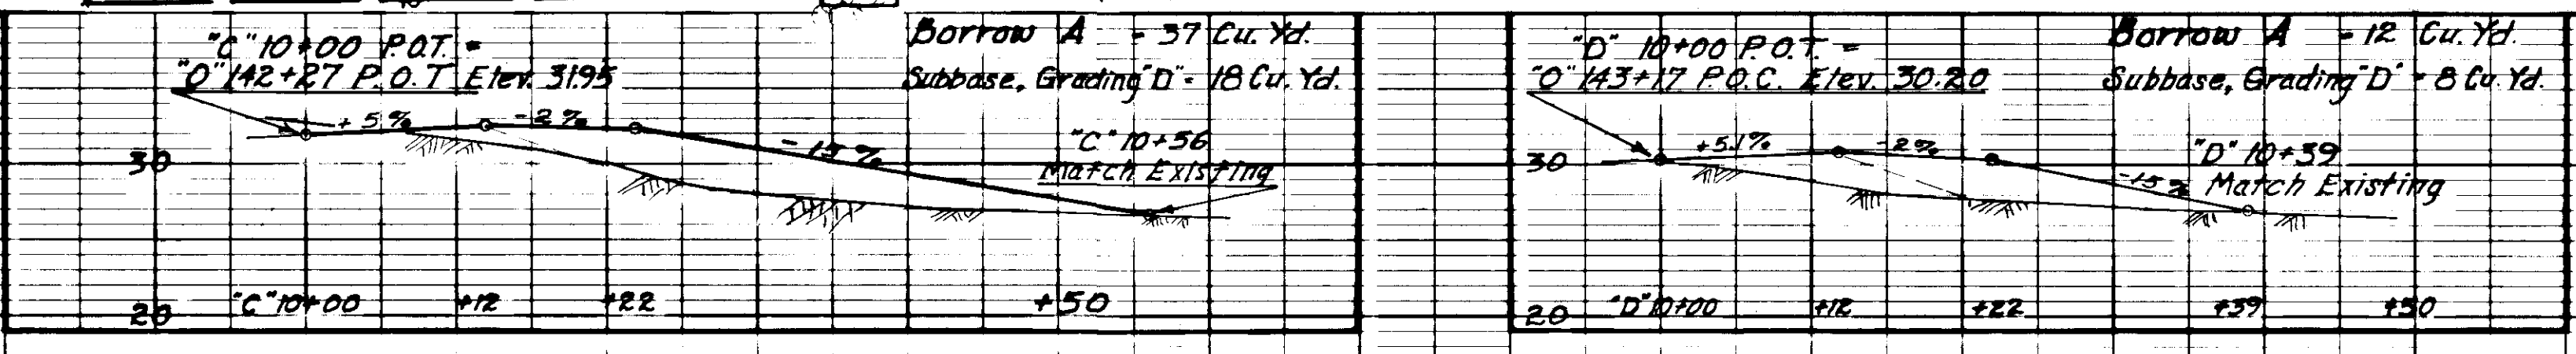 "C" 10+00 P.O.T. =
"O" 142+27 P.O.T Elev. 31.95
Borrow A - 37 Cu. Yd.
Subbase, Grading "D" - 18 Cu. Yd.
+5%
-2%
-15%
"C" 10+56
Match Existing
30
20
"C" 10+00
+12
+22
+50
"D" 10+00 P.O.T. =
"O" 143+17 P.O.C. Elev. 30.20
Borrow A - 12 Cu. Yd.
Subbase, Grading "D" - 8 Cu. Yd.
+5.1%
-2%
-15%
"D" 10+39
Match Existing
30
20
"D" 10+00
+12
+22
+39
+50